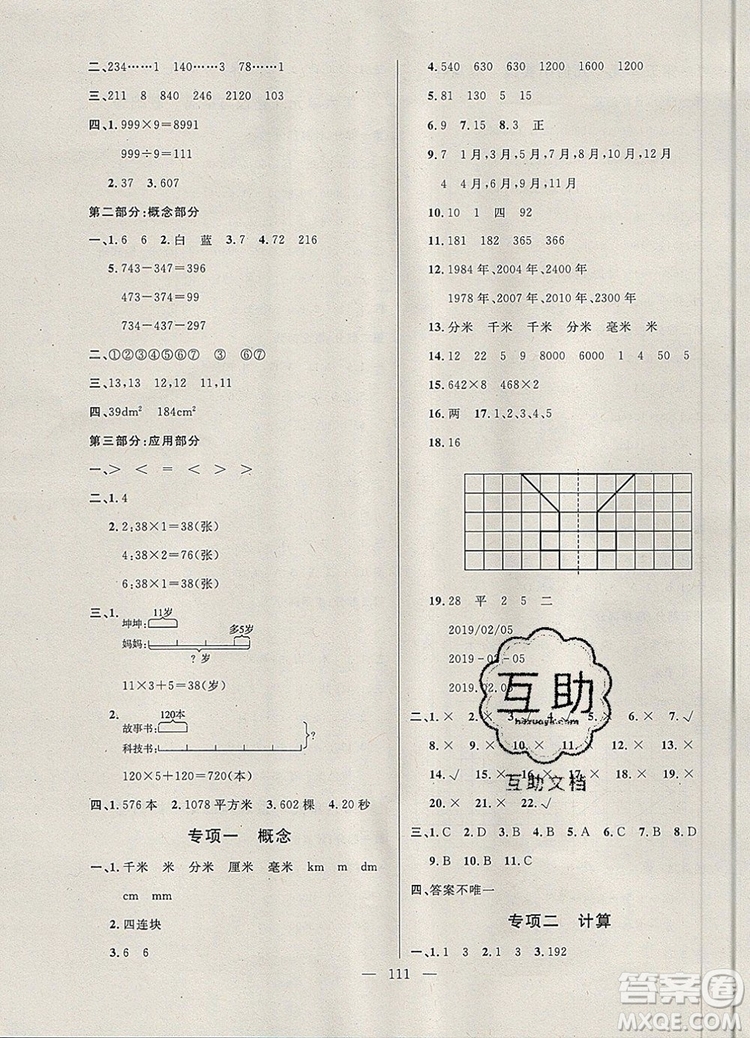 二、234……1 140……3 78……1
三、211 8 840 246 2120 103
四、1.999×9=8991
999÷9=111
2.37 3.607
第二部分:概念部分
一、1.6 6 2.白 蓝 3.7 4.72 216
5.743-347=396
473-374=99
734-437=297
二、①②③④⑤⑥⑦ ③ ⑥⑦
三、13,13 12,12 11,11
四、39dm² 184cm²
第三部分:应用部分
一、> < = < > <
二、1.4
2.2;38×1=38(张)
4;38×2=76(张)
6;38×1=38(张)
三、1.
11岁
坤坤:
多5岁
妈妈:
?岁
11×3+5=38(岁)
2.
120本
故事书:
科技书:
?
120×5+120=720(本)
四、1.576 本 2.1078 平方米 3.602 棵 4.20 秒
专项一 概念
一、1.千米 米 分米 厘米 毫米 km m dm
cm mm
2.四连块
3.6 6
4.540 630 630 1200 1600 1200
5.81 130 5 15
6.9 7.15 8.3 正
9.7 1月,3月,5月,7月,8月,10月,12月
4 4月,6月,9月,11月
10.10 1 四 92
11.181 182 365 366
12.1984 年、2004 年、2400 年
1978 年、2007 年、2010 年、2300 年
13.分米 千米 千米 分米 毫米 米
14.12 22 5 9 8000 6000 1 50 5
15.642×8 468×2
16.两 17.1、2、3、4、5
18.16
19.28 平 2 5 二
2019/02/05
2019-02-05
2019.02.05
二、1.× 2.× 3.× 4.× 5.× 6.× 7.√
8.× 9.× 10.× 11.× 12.× 13.×
14.√ 15.× 16.× 17.× 18.× 19.×
20.× 21.× 22.×
三、1.C 2.D 3.C 4.B 5.C 6.C 7.C 8.D
9.B 10.B 11.C
四、答案不唯一
专项二 计算
一、1.1 3 2.1 3 3.192
— 111 —
互助
hzzuoyk.com
互助文档
答案圈
MXQE.COM